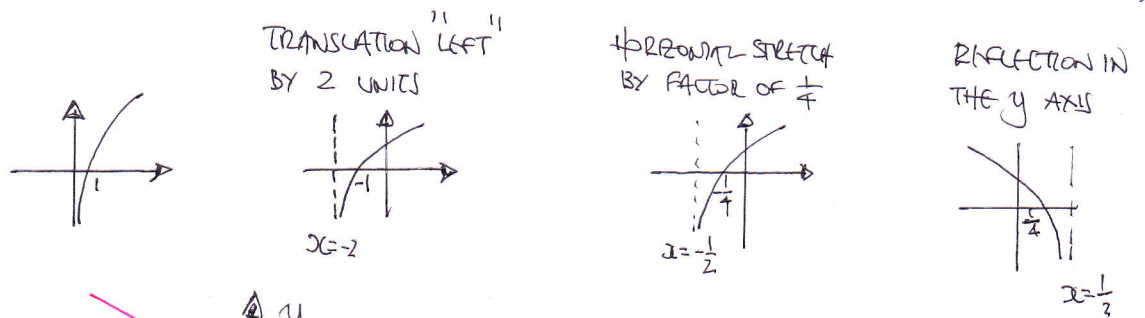 TRANSLATION "LEFT"
BY 2 UNITS
HORIZONTAL STRETCH
BY FACTOR OF 1/4
REFLECTION IN
THE y AXIS
1
-1
x=-2
-1/4
x=-1/2
1/4
x=1/2
y